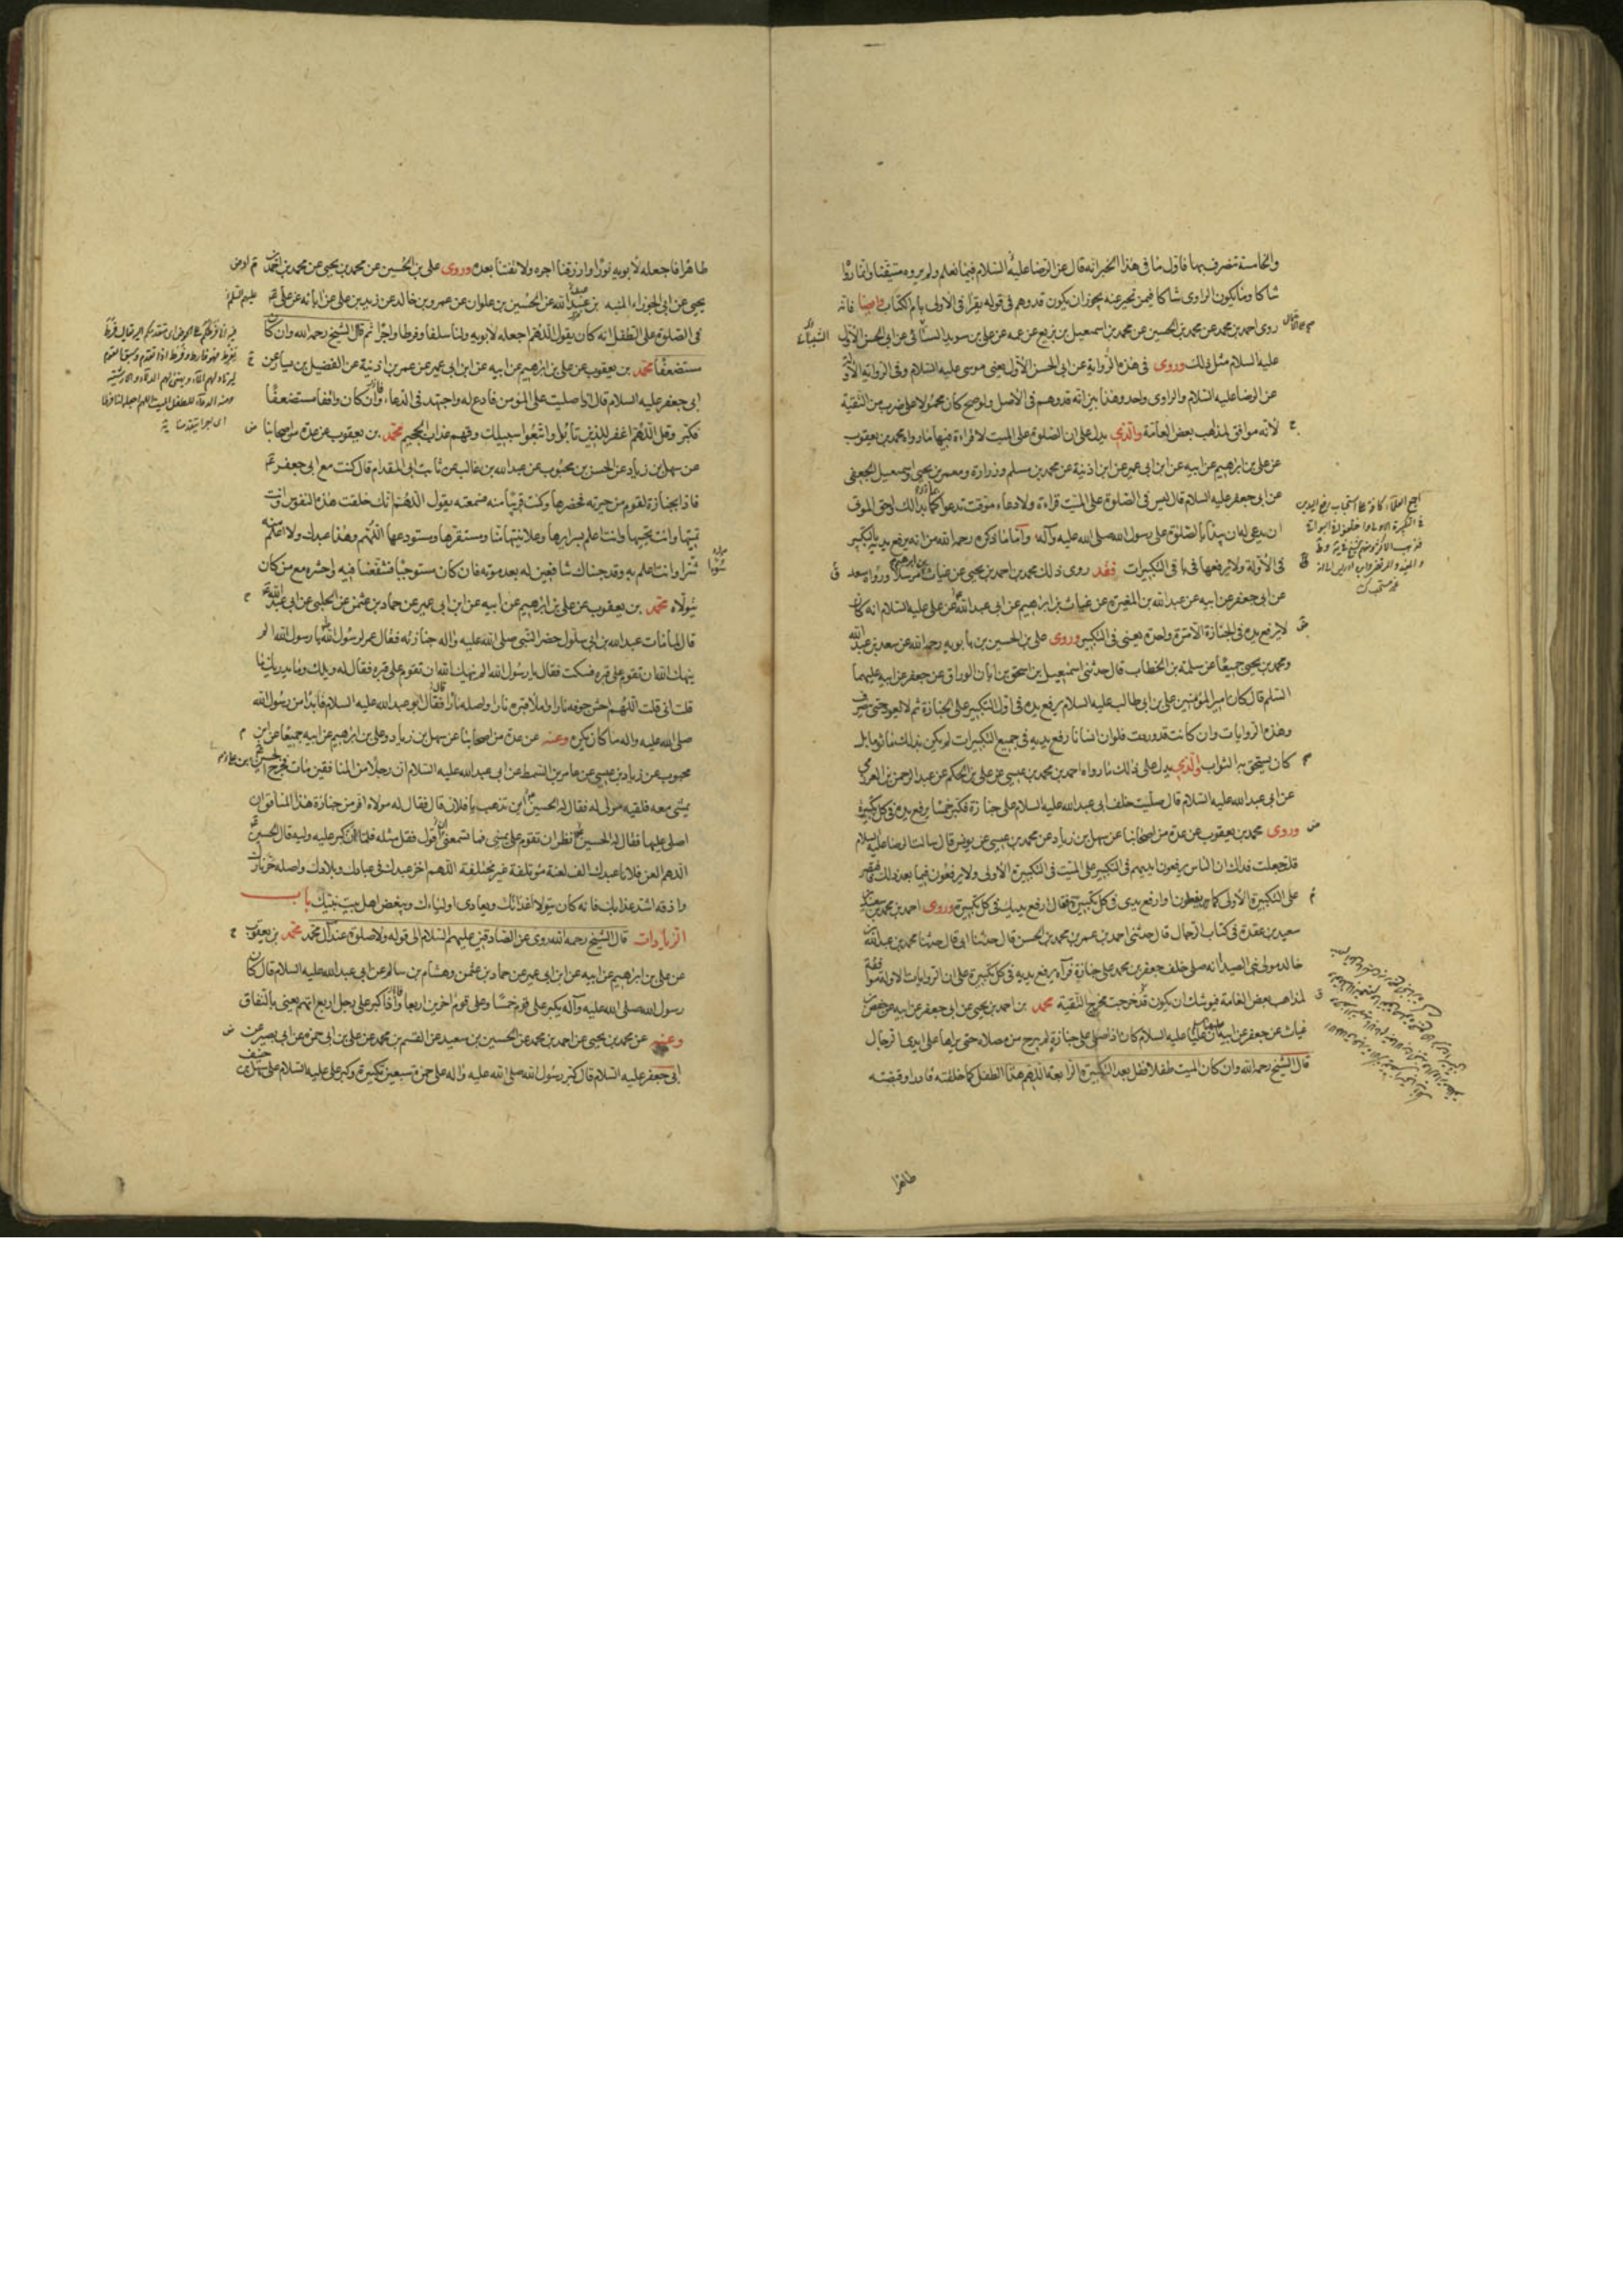 والخامسة تنصرف بها فاول ما فى هذا الخبر انه قال عن الرضا عليه السلام فيما نعلم ولم يروه متيقنا وانما رواه
شاكا وما يكون الراوى شاكا فيمن تخبر عنه يجوز ان يكون قد وهم فى قوله يقرأ فى الاولى بام الكتاب وايضا فانه
روى احمد بن محمد عن محمد بن الحسين عن محمد بن اسمعيل بن بزيع عن عمه عن على بن سويد السائى عن ابى الحسن الاول
عليه السلام مثل ذلك وروى فى هذه الرواية عن ابى الحسن الاول يعنى موسى عليه السلام وفى الرواية الاولى
عن الرضا عليه السلام والراوى واحد وهذا يبين انه قد وهم فى الاصل ولو صح كان محمولا على ضرب من التقية
لانه موافق لمذهب بعض العامة والذى يدل على ان الصلوة على الميت لا قراءة فيها ما رواه محمد بن يعقوب
عن على بن ابراهيم عن ابيه عن ابن ابى عمير عن ابن اذنية عن محمد بن مسلم وزرارة ومعمر بن يحيى واسمعيل الجعفى
عن ابى جعفر عليه السلام قال ليس فى الصلوة على الميت قراءة ولا دعاء موقت تدعوا بما بدا لك واحق الموتى
ان يدعى له ان يبدأ بالصلوة على رسول الله صلى الله عليه وآله واما ما ذكره رحمه الله من انه يرفع يديه بالتكبير
فى الاولة ولا يرفعها فى باقى التكبيرات فقد روى ذلك محمد بن احمد بن يحيى عن غياث بن ابراهيم مرسلا ورواه سعد
عن ابى جعفر عن ابيه عن عبد الله بن المغيرة عن غياث بن ابراهيم عن ابى عبد الله عن على عليه السلام انه كان
لا يرفع يده فى الجنازة الا مرة واحدة يعنى فى التكبير وروى على بن الحسين بن بابويه رحمه الله عن سعد بن عبد الله
ومحمد بن يحيى جميعا عن سلمة بن الخطاب قال حدثنى اسمعيل بن اسحق بن ابان الوراق عن جعفر عن ابيه عليهما
السلم قال كان امير المؤمنين على بن ابى طالب عليه السلام يرفع يده فى اول التكبير على الجنازة ثم لا يعود حتى ينصرف
وهذه الروايات وان كانت قد وردت فلو ان انسانا رفع يديه فى جميع التكبيرات لم يكن بذلك ماثوما بل
كان يستحق به الثواب والذى يدل على ذلك ما رواه احمد بن محمد بن عيسى عن على بن الحكم عن عبد الرحمن بن العزرمى
عن ابى عبد الله عليه السلام قال صليت خلف ابى عبد الله عليه السلام على جنازة فكبر خمسا يرفع يده فى كل تكبيرة
وروى محمد بن يعقوب عن عدة من اصحابنا عن سهل بن زياد عن محمد بن عيسى عن يونس قال سالت الرضا عليه السلام
قلت جعلت فداك ان الناس يرفعون ايديهم فى التكبير على الميت فى التكبيرة الاولى ولا يرفعون فيما بعد ذلك فاقتصر
على التكبيرة الاولى كما يفعلون او ارفع يدى فى كل تكبيرة فقال ارفع يديك فى كل تكبيرة وروى احمد بن محمد بن سعيد
سعيد بن عقدة فى كتاب الرجال قال حدثنى احمد بن عمر بن محمد بن الحسن قال حدثنا ابى قال حدثنا محمد بن عبد الله
خالد مولى بنى الصيدا انه صلى خلف جعفر بن محمد على جنازة فرآه يرفع يديه فى كل تكبيرة على ان الروايات الاولة موافقة
لمذاهب بعض العامة فيوشك ان يكون قد خرجت مخرج التقية محمد بن احمد بن يحيى عن ابى جعفر عن ابيه عن حفص
غياث عن جعفر عن ابيه ان عليا عليه السلام كان اذا صلى على جنازة لم يبرح من مصلاه حتى يراها على ايدى الرجال
قال الشيخ رحمه الله وان كان الميت طفلا فقل بعد التكبيرة الرابعة اللهم هذا الطفل كما خلقته قادرا وقبضته
طاهرا
طاهرا فاجعله لابويه نورا وارزقنا اجره ولا تفتنا بعده وروى على بن الحسين عن محمد بن يحيى عن محمد بن احمد بن
يحيى عن ابى الجوزاء المنبه بن عبد الله عن الحسين بن علوان عن عمرو بن خالد عن زيد بن على عن ابائه عن على
فى الصلوة على الطفل انه كان يقول اللهم اجعله لابويه ولنا سلفا وفرطا واجرا ثم قال الشيخ رحمه الله وان كان
مستضعفا محمد بن يعقوب عن على بن ابراهيم عن ابيه عن ابن ابى عمير عن عمر بن اذنية عن الفضيل بن يسار عن
ابى جعفر عليه السلام قال اذا صليت على المؤمن فادع له واجتهد فى الدعاء وان كان واقفا مستضعفا
فكبر وقل اللهم اغفر للذين تابوا واتبعوا سبيلك وقهم عذاب الجحيم محمد بن يعقوب عن عدة من اصحابنا
عن سهل بن زياد عن الحسن بن محبوب عن عبد الله بن غالب عن ثابت ابى المقدام قال كنت مع ابى جعفر
فاذا بجنازة لقوم من جيرته فحضرها وكنت قريبا منه فسمعته يقول اللهم انك خلقت هذه النفوس وانت
تميتها وانت تحييها وانت اعلم بسرايرها وعلانيتها منا ومستقرها ومستودعها اللهم وهذا عبدك ولا اعلم منه
شرا وانت اعلم به وقد جئناك شافعين له بعد موته فان كان مستوجبا فشفعنا فيه واحشره مع من كان
يتولاه محمد بن يعقوب عن على بن ابراهيم عن ابيه عن ابن ابى عمير عن حماد بن عثمن عن الحلبى عن ابى عبد الله
قال لما مات عبد الله بن ابى سلول حضر النبى صلى الله عليه واله جنازته فقال عمر لرسول الله يا رسول الله الم
ينهك الله ان تقوم على قبره فسكت فقال يا رسول الله الم ينهك الله ان تقوم على قبره فقال له ويلك وما يدريك ما
قلت انى قلت اللهم احش جوفه نارا واملا قبره نارا واصله نارا فقال ابو عبد الله عليه السلام فابدا من رسول الله
صلى الله عليه واله ما كان يكره وعنه عن عدة من اصحابنا عن سهل بن زياد وعلى بن ابراهيم عن ابيه جميعا عن ابن
محبوب عن زياد بن عيسى عن عامر بن السمط عن ابى عبد الله عليه السلام ان رجلا من المنافقين مات فخرج الحسين
يمشى معه فلقيه مولى له فقال له الحسين اين تذهب يا فلان قال فقال له مولاه افر من جنازة هذا المنافق ان
اصلى عليها فقال له الحسين انظر ان تقوم على يمينى فما تسمعنى اقول فقل مثله فلما ان كبر عليه وليه قال الحسين
اللهم العن فلانا عبدك الف لعنة مؤتلفة غير مختلفة اللهم اخز عبدك فى عبادك وبلادك واصله حر نارك
واذقه اشد عذابك فانه كان يتولا اعدائك ويعادى اولياءك ويبغض اهل بيت نبيك باب
الزيادات قال الشيخ رحمه الله روى عن الصادقين عليهم السلام الى قوله ولا صلوة عند آل محمد محمد بن يعقوب
عن على بن ابراهيم عن ابيه عن ابن ابى عمير عن حماد بن عثمن وهشام بن سالم عن ابى عبد الله عليه السلام قال كان
رسول الله صلى الله عليه وآله يكبر على قوم خمسا وعلى قوم اخرين اربعا واذا كبر على رجل اربع اتهم يعنى بالنفاق
وعنه عن محمد بن يحيى عن احمد بن محمد عن الحسين بن سعيد عن القسم بن محمد عن على بن ابى حمزة عن ابى بصير عن
ابى جعفر عليه السلام قال كبر رسول الله صلى الله عليه واله على حمزة سبعين تكبيرة وكبر على عليه السلام على سهل بن حنيف